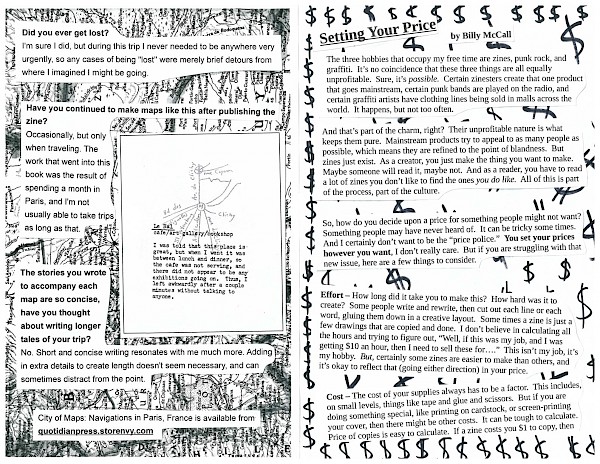 Did you ever get lost?
I'm sure I did, but during this trip I never needed to be anywhere very
urgently, so any cases of being "lost" were merely brief detours from
where I imagined I might be going.
Have you continued to make maps like this after publishing the
zine?
Occasionally, but only
when traveling. The
work that went into this
book was the result of
spending a month in
Paris, and I'm not
usually able to take trips
as long as that.
cafe/art gallery/bookshop
I was told that this place is
great, but when I went it was
between lunch and dinner, so
the cafe was not serving, and
there did not appear to be any
exhibitions going on. Thus, I
left awkwardly after a couple
minutes without talking to
anyone.
The stories you wrote
to accompany each
map are so concise,
have you thought
about writing longer
tales of your trip?
No. Short and concise writing resonates with me much more. Adding
in extra details to create length doesn't seem necessary, and can
sometimes distract from the point.
City of Maps: Navigations in Paris, France is available from
quotidianpress.storenvy.com
Setting Your Price
by Billy McCall
The three hobbies that occupy my free time are zines, punk rock, and
graffiti. It's no coincidence that these three things are all equally
unprofitable. Sure, it's possible. Certain zinesters create that one product
that goes mainstream, certain punk bands are played on the radio, and
certain graffiti artists have clothing lines being sold in malls across the
world. It happens, but not too often.
And that's part of the charm, right? Their unprofitable nature is what
keeps them pure. Mainstream products try to appeal to as many people as
possible, which means they are refined to the point of blandness. But
zines just exist. As a creator, you just make the thing you want to make.
Maybe someone will read it, maybe not. And as a reader, you have to read
a lot of zines you don't like to find the ones you do like. All of this is part
of the process, part of the culture.
So, how do you decide upon a price for something people might not want?
Something people may have never heard of. It can be tricky some times.
And I certainly don't want to be the "price police." You set your prices
however you want, I don't really care. But if you are struggling with that
new issue, here are a few things to consider.
Effort – How long did it take you to make this? How hard was it to
create? Some people write and rewrite, then cut out each line or each
word, gluing them down in a creative layout. Some times a zine is just a
few drawings that are copied and done. I don't believe in calculating all
the hours and trying to figure out, "Well, if this was my job, and I was
getting $10 an hour, then I need to sell these for…." This isn't my job, it's
my hobby. But, certainly some zines are easier to make than others, and
it's okay to reflect that (going either direction) in your price.
Cost – The cost of your supplies always has to be a factor. This includes,
on small levels, things like tape and glue and scissors. But if you are
doing something special, like printing on cardstock, or screen-printing
your cover, then there might be other costs. It can be tough to calculate.
Price of copies is easy to calculate. If a zine costs you $1 to copy, then